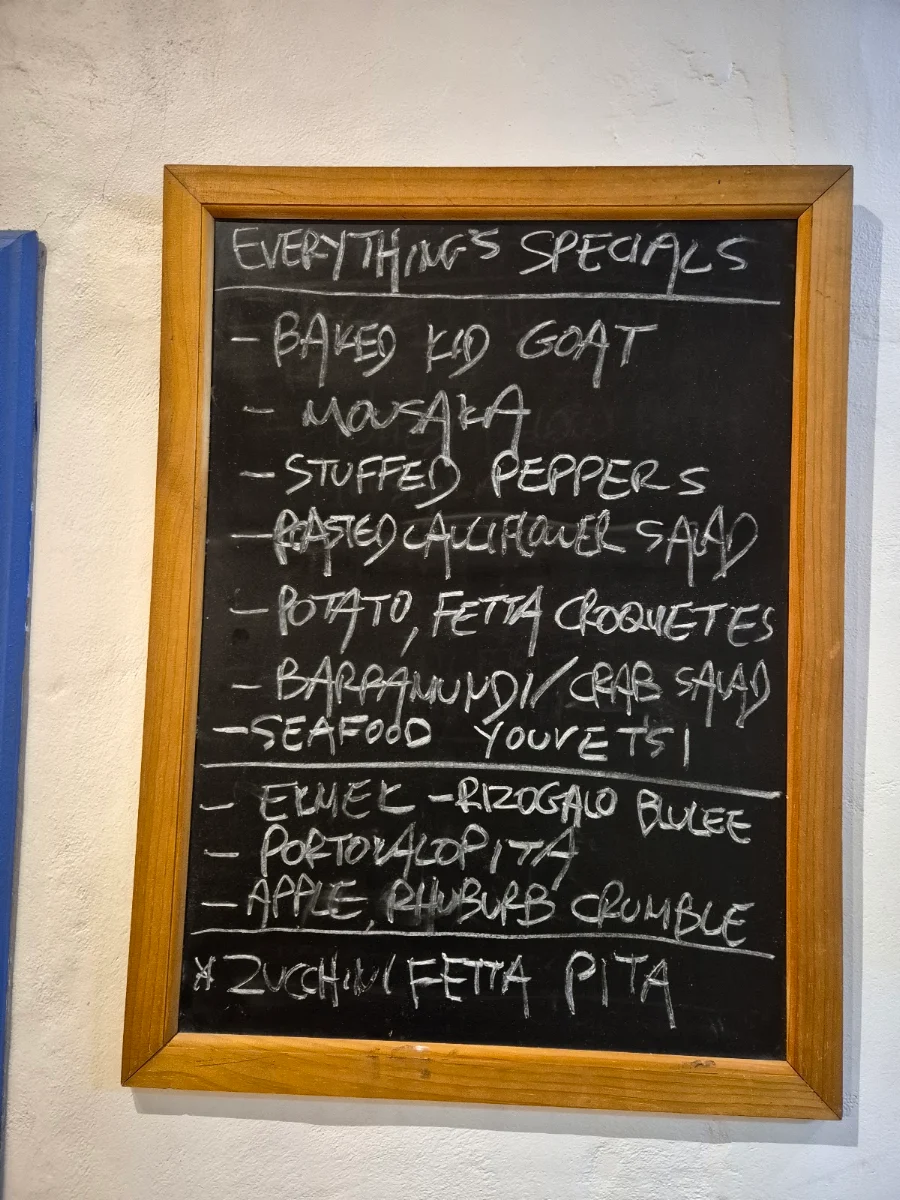 EVERYTHING'S SPECIALS
- BAKED KID GOAT
- MOUSAKA
- STUFFED PEPPERS
- ROASTED CAULIFLOWER SALAD
- POTATO, FETTA CROQUETES
- BARRAMUNDI/CRAB SALAD
- SEAFOOD YOUVETSI
- EKMEK - RIZOGALO BLULEE
- PORTOKALOPITA
- APPLE, RHUBURB CRUMBLE
* ZUCCHINI FETTA PITA